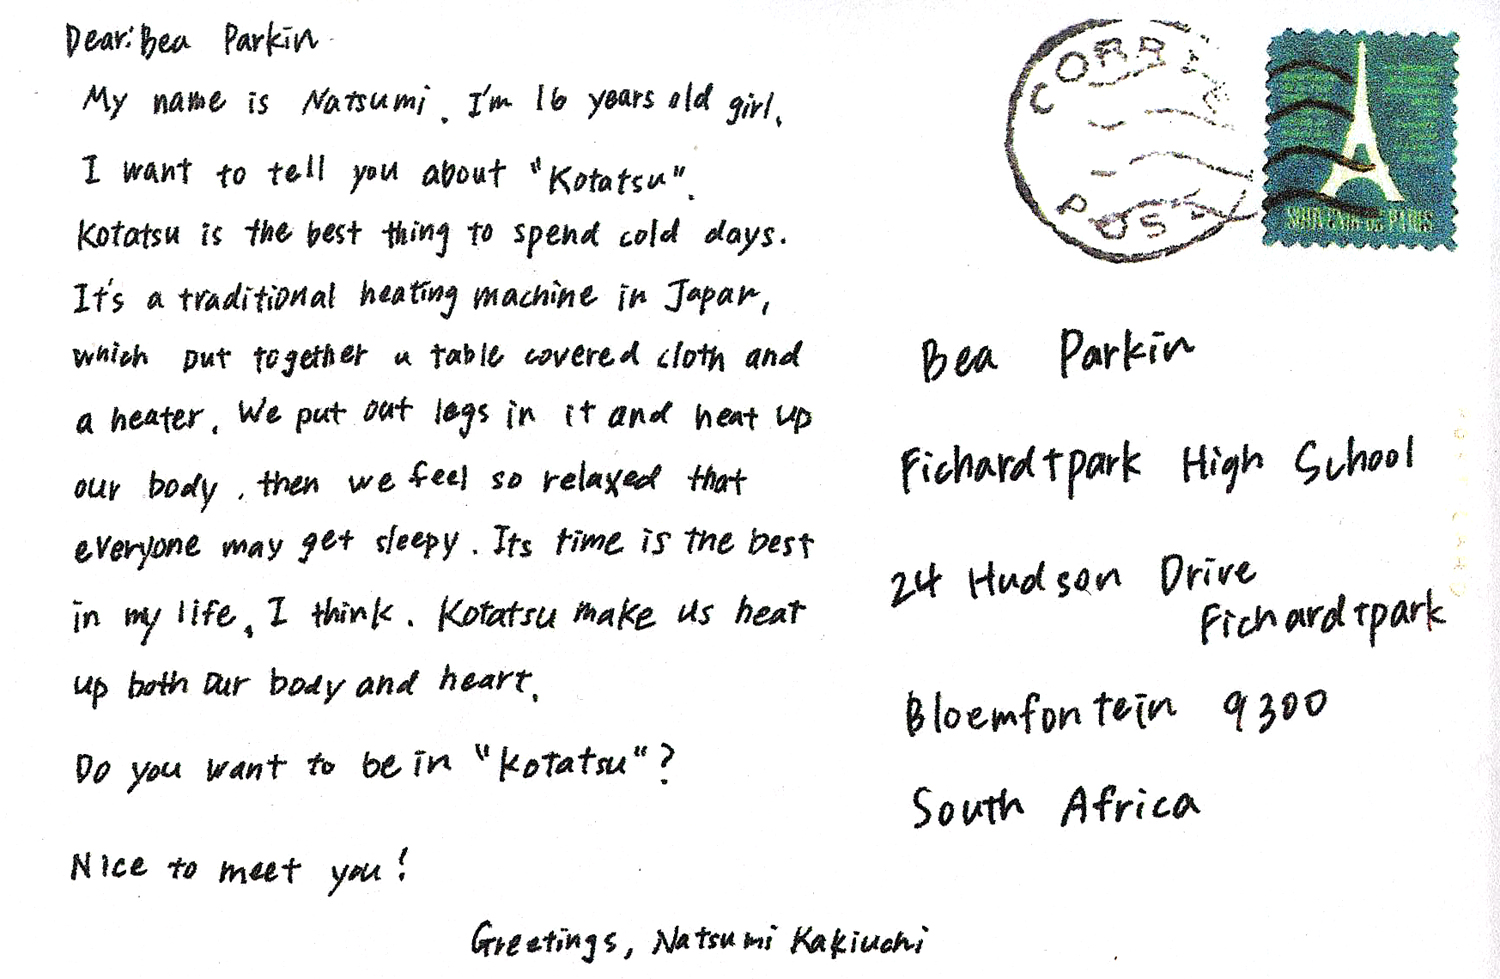 Dear: Bea Parkin
My name is Natsumi. I'm 16 years old girl.
I want to tell you about "Kotatsu".
Kotatsu is the best thing to spend cold days.
It's a traditional heating machine in Japan,
which put together a table covered cloth and
a heater. We put out legs in it and heat up
our body, then we feel so relaxed that
everyone may get sleepy. Its time is the best
in my life, I think. Kotatsu make us heat
up both our body and heart.
Do you want to be in "Kotatsu"?
Nice to meet you!
Greetings, Natsumi Kakiuchi
POST
PARIS
Bea Parkin
Fichardtpark High School
24 Hudson Drive
Fichardtpark
Bloemfontein 9300
South Africa